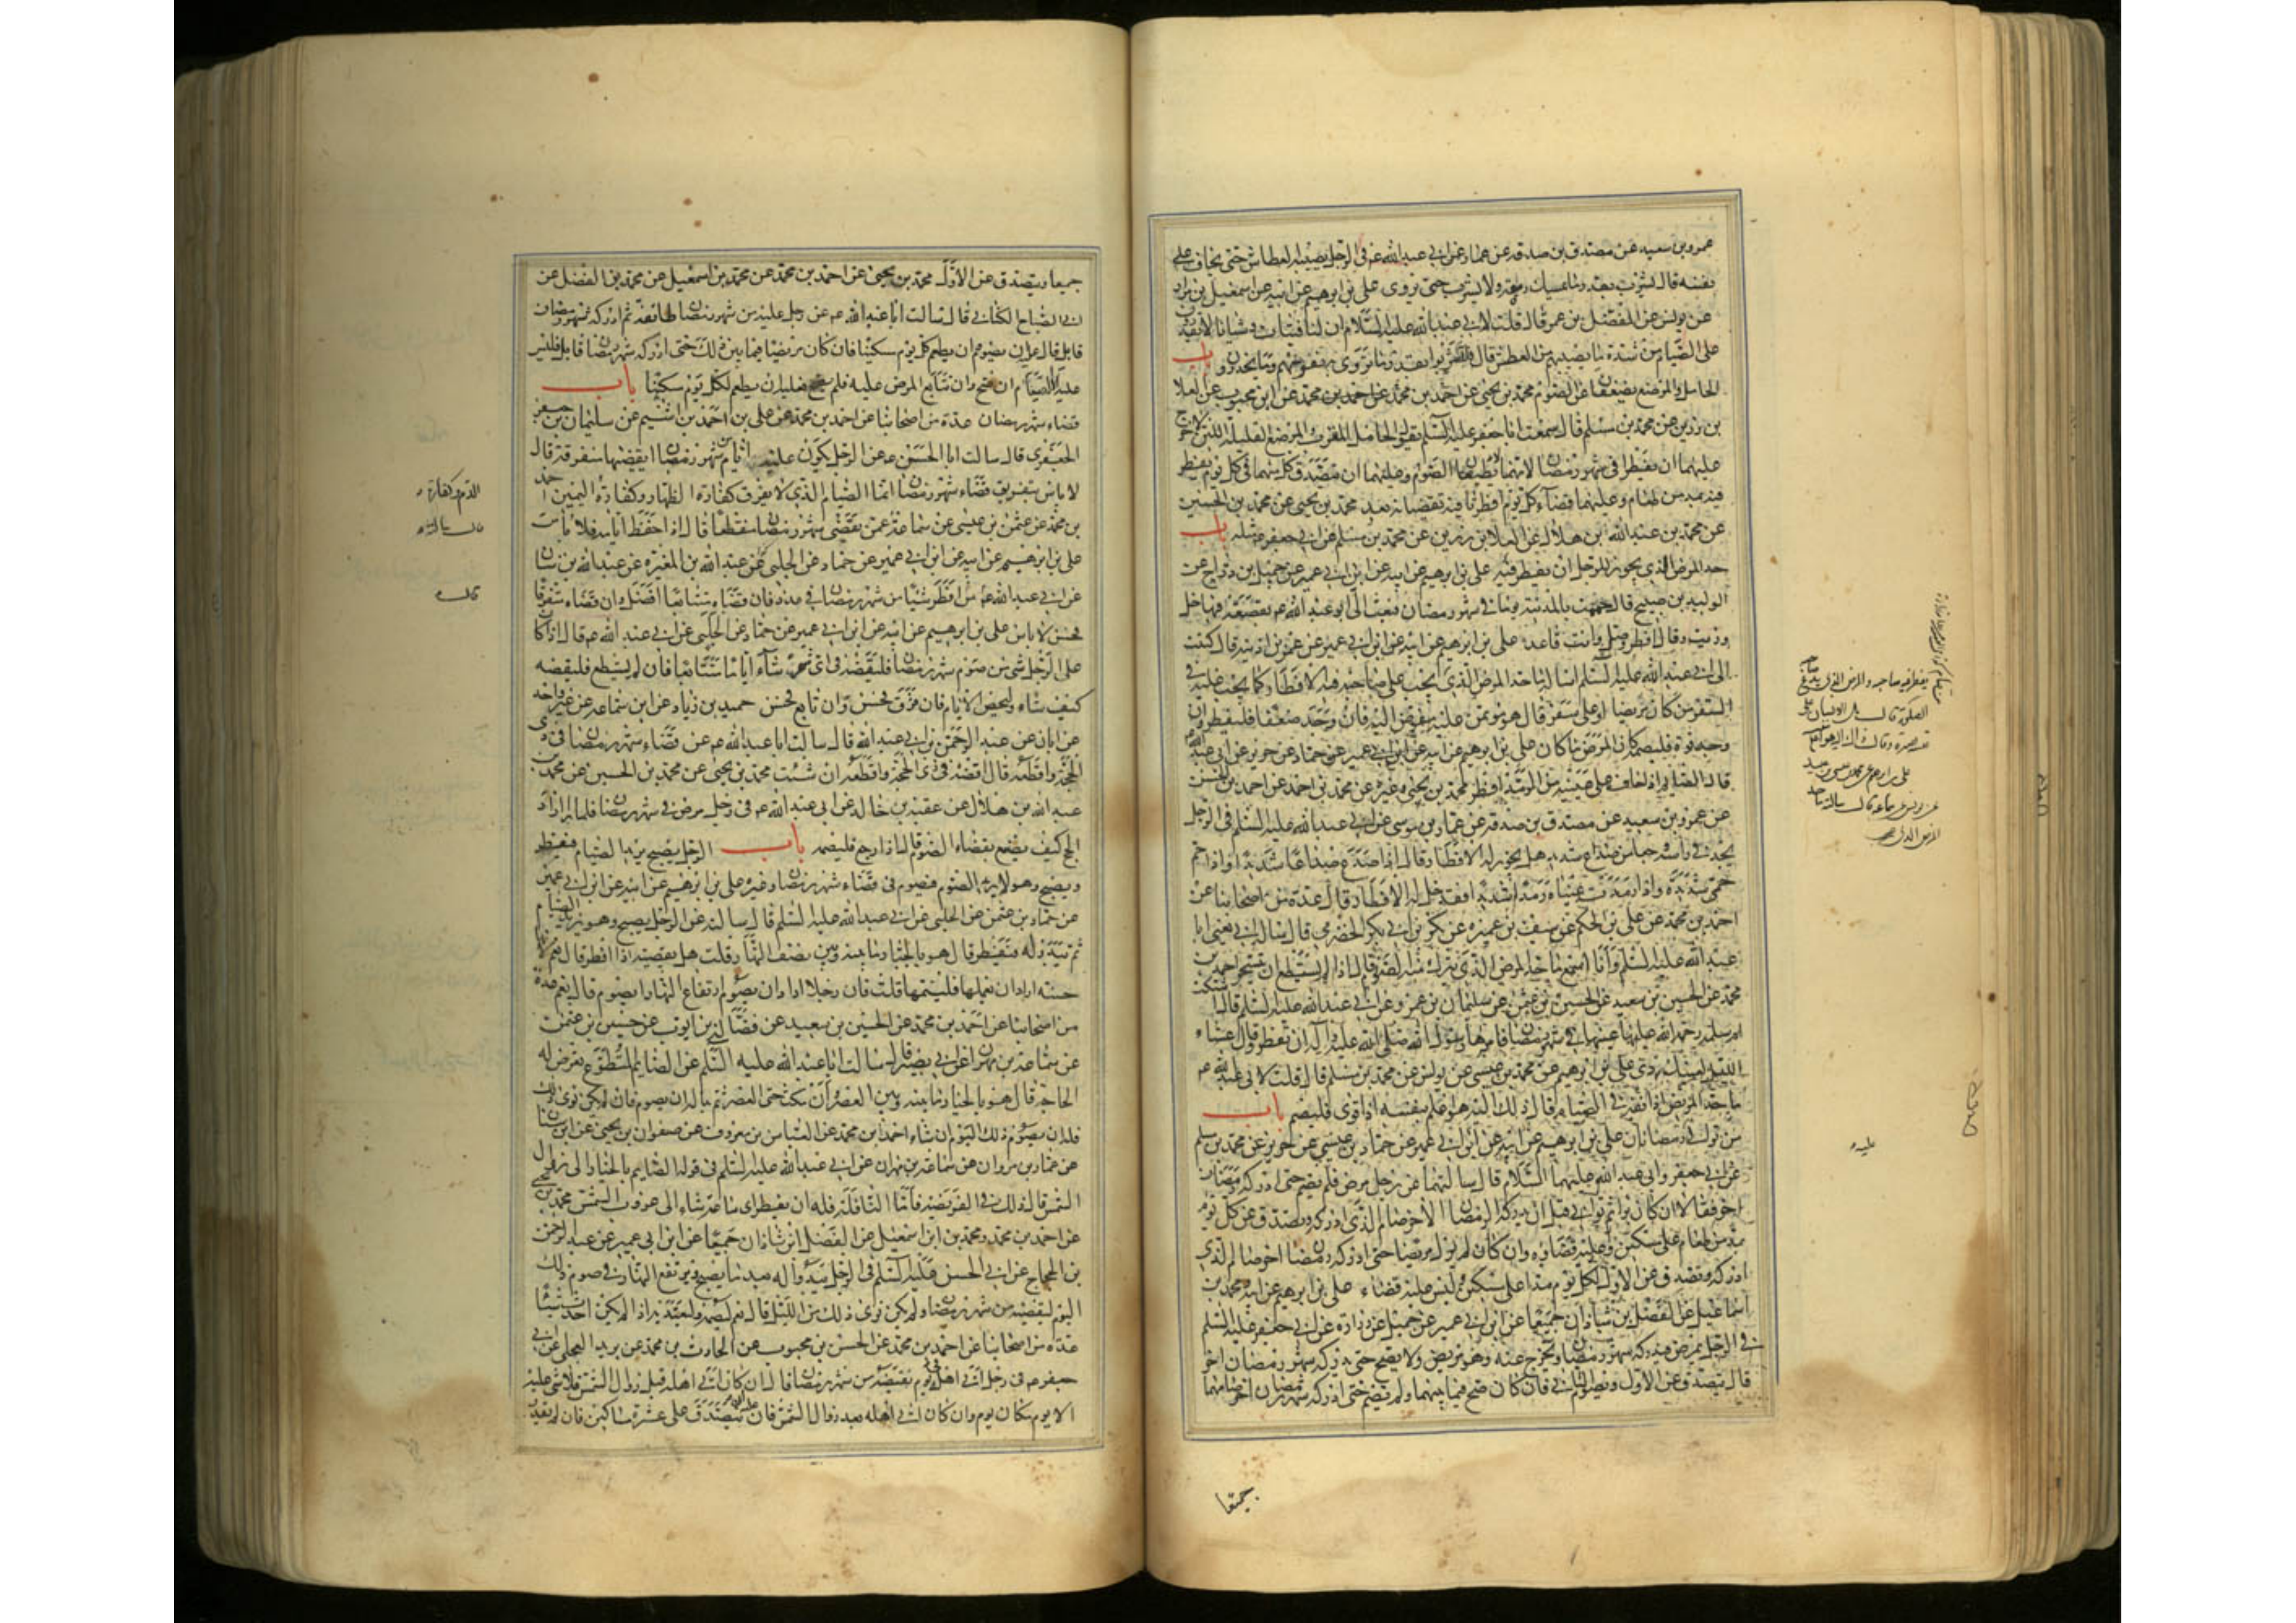 عمرو بن سعيد عن مصدق بن صدقة عن عمار عن ابي عبد الله ع في الرجل يصيبه العطاش حتى يخاف على
نفسه قال يشرب بقدر ما يمسك رمقه ولا يشرب حتى يروى علي بن ابرهيم عن ابيه عن اسمعيل بن مرار
عن يونس عن المفضل بن عمر قال قلت لابي عبد الله عليه السلام ان لنا فتيات وشبانا لا يقدرون
على الصيام من شدة ما يصيبهم من العطش قال فليشربوا بقدر ما تروى به نفوسهم وما يحذرون باب
الحامل والمرضع يضعفان عن الصوم محمد بن يحيى عن احمد بن محمد عن ابن محبوب عن العلا
بن رزين عن محمد بن مسلم قال سمعت ابا جعفر عليه السلم يقول الحامل المقرب والمرضع القليلة اللبن لا حرج
عليهما ان تفطرا في شهر رمضان لانهما لا تطيقان الصوم وعليهما ان تتصدق كل منهما في كل يوم يفطر
فيه بمد من طعام وعليهما قضاء كل يوم افطرتا فيه تقضيانه بعد محمد بن يحيى عن محمد بن الحسين
عن محمد بن عبد الله بن هلال عن العلا بن رزين عن محمد بن مسلم عن ابي جعفر مثله باب
حد المرض الذي يجوز للرجل ان يفطر فيه علي بن ابرهيم عن ابيه عن ابن ابي عمير عن جميل بن دراج عن
الوليد بن صبيح قال حممت بالمدينة يوما في شهر رمضان فبعث الي ابو عبد الله ع بقصعة فيها خل
وزيت وقال افطر وصل وانت قاعد علي بن ابرهيم عن ابيه عن ابن ابي عمير عن عمر بن اذينه قال كتبت
الى ابي عبد الله عليه السلم اساله ما حد المرض الذي يجب على صاحبه فيه الافطار كما يجب عليه في
السفر من كان مريضا او على سفر قال هو مؤتمن عليه مفوض اليه فان وجد ضعفا فليفطر وان
وجد قوة فليصمه كان المرض ما كان علي بن ابرهيم عن ابيه عن ابن ابي عمير عن حماد عن حريز عن ابي عبد الله
قال الصايم اذا خاف على عينيه من الرمد افطر محمد بن يحيى وغيره عن محمد بن احمد عن احمد بن الحسن
عن عمرو بن سعيد عن مصدق بن صدقه عن عمار بن موسى عن ابي عبد الله عليه السلم في الرجل
يجد في راسه وجعا من صداع شديد هل يجوز له الافطار قال اذا صدع صداعا شديدا واذا حم
حمى شديدة واذا رمدت عيناه رمدا شديدا فقد حل له الافطار عدة من اصحابنا عن
احمد بن محمد عن علي بن الحكم عن سيف بن عميره عن بكر بن ابي بكر الحضرمي قال سال ابي يعني ابا
عبد الله عليه السلم وانا اسمع ما حد المرض الذي يترك منه الصوم قال اذا لم يستطع ان يتسحر احمد بن
محمد عن الحسين بن سعيد عن الحسين بن عثمن عن سليمان بن عمرو عن ابي عبد الله عليه السلم قال اشتكت
ام سلمه رحمة الله عليها عينها في شهر رمضان فامرها رسول الله صلى الله عليه واله ان تفطر وقال عشاء
الليل لعينك ردي علي بن ابرهيم عن محمد بن عيسى عن يونس عن محمد بن مسلم قال قلت لابي عبد الله ع
ما حد المريض اذا نقه في الصيام قال ذلك اليه هو اعلم بنفسه اذا قوى فليصم باب
من توالى عليه رمضانان علي بن ابرهيم عن ابيه عن ابن ابي عمير عن حماد بن عيسى عن حريز عن محمد بن مسلم
عن ابي جعفر وابي عبد الله عليهما السلام قال سالتهما عن رجل مرض فلم يصم حتى ادركه رمضان
اخر فقالا ان كان برا ثم توانى قبل ان يدركه الرمضان الاخر صام الذي ادركه وتصدق عن كل يوم
بمد من طعام على مسكين وعليه قضاؤه وان كان لم يزل مريضا حتى ادركه رمضان اخر صام الذي
ادركه وتصدق عن الاول لكل يوم مدا على مسكين وليس عليه قضاء علي بن ابرهيم عن ابيه ومحمد بن
اسماعيل عن الفضل بن شاذان جميعا عن ابن ابي عمير عن جميل عن زرارة عن ابي جعفر عليه السلم
في الرجل يمرض فيدركه شهر رمضان ويخرج عنه وهو مريض ولا يصح حتى يدركه شهر رمضان اخر
قال يتصدق عن الاول ويصوم الثاني فان كان صح فيما بينهما ولم يصم حتى ادركه شهر رمضان اخر صامهما
جميعا
جميعا ويتصدق عن الاول محمد بن يحيى عن احمد بن محمد عن محمد بن اسمعيل عن محمد بن الفضل عن
ابي الصباح الكناني قال سالت ابا عبد الله ع عن رجل عليه من شهر رمضان طائفة ثم ادركه شهر رمضان
قابل قال عليه ان يصوم وان يطعم كل يوم مسكينا فان كان مريضا فيما بين ذلك حتى ادركه شهر رمضان قابل فليس
عليه الا الصيام ان صح وان تتابع المرض عليه فلم يصح فعليه ان يطعم لكل يوم مسكينا باب
قضاء شهر رمضان عدة من اصحابنا عن احمد بن محمد عن علي بن احمد بن اشيم عن سليمان بن جعفر
الجعفري قال سالت ابا الحسن ع عن الرجل يكون عليه ايام من شهر رمضان ايقضيها متفرقة قال
لا باس بتفريق قضاء شهر رمضان انما الصيام الذي لا يفرق كفارة الظهار وكفارة اليمين احمد
بن محمد عن عثمن بن عيسى عن سماعة عمن يقضي شهر رمضان منقطعا قال اذا حفظ ايامه فلا باس
علي بن ابرهيم عن ابيه عن ابن ابي عمير عن حماد عن الحلبي عن عبد الله بن المغيرة عن عبد الله بن سنان
عن ابي عبد الله ع من افطر شيئا من شهر رمضان في عذر فان قضاه متتابعا افضل وان قضاه متفرقا
فحسن لا باس علي بن ابرهيم عن ابيه عن ابن ابي عمير عن حماد عن الحلبي عن ابي عبد الله ع قال اذا كان
على الرجل شي من صوم شهر رمضان فليقضه في اي شهر شاء اياما متتابعا فان لم يستطع فليقضه
كيف شاء وليحص الايام فان فرق فحسن وان تابع فحسن حميد بن زياد عن ابن سماعه عن غير واحد
عن ابان عن عبد الرحمن بن ابي عبد الله قال سالت ابا عبد الله ع عن قضاء شهر رمضان في ذي
الحجة واقطعه قال اقضه في ذي الحجة واقطعه ان شئت محمد بن يحيى عن محمد بن الحسين عن محمد بن
عبد الله بن هلال عن عقبة بن خالد عن ابي عبد الله ع في رجل مرض في شهر رمضان فلما برا اراد
الحج كيف يصنع بقضاء الصوم قال اذا رجع فليصمه باب الرجل يصبح يريد الصيام فيفطر
ويصبح وهو لا يريد الصوم فيصوم في قضاء شهر رمضان وغيره علي بن ابرهيم عن ابيه عن ابن ابي عمير
عن حماد بن عثمن عن الحلبي عن ابي عبد الله عليه السلم قال سالته عن الرجل يصبح وهو يريد الصيام
ثم يبدو له فيفطر قال هو بالخيار ما بينه وبين نصف النهار قلت هل يقضيه اذا افطر قال نعم لانها
حسنة اراد ان يعملها فليتمها قلت فان رجلا اراد ان يصوم ارتفاع النهار ايصوم قال نعم عدة
من اصحابنا عن احمد بن محمد عن الحسين بن سعيد عن فضالة بن ايوب عن حسين بن عثمن
عن سماعة بن مهران عن ابي بصير قال سالت ابا عبد الله عليه السلم عن الصايم المتطوع تعرض له
الحاجة قال هو بالخيار ما بينه وبين العصر وان مكث حتى العصر ثم بدا له ان يصوم فان لم يكن نوى ذلك
فله ان يصوم ذلك اليوم ان شاء احمد بن محمد عن العباس بن معروف عن صفوان بن يحيى عن ابن سنان
عن عمار بن مروان عن سماعة بن مهران عن ابي عبد الله عليه السلم في قوله الصايم بالخيار الى زوال
الشمس قال ذلك في الفريضة فاما النافلة فله ان يفطر اي ساعة شاء الى غروب الشمس محمد بن يحيى
عن احمد بن محمد ومحمد بن اسمعيل عن الفضل بن شاذان جميعا عن ابن ابي عمير عن عبد الرحمن
بن الحجاج عن ابي الحسن عليه السلم في الرجل يبدو له بعد ما يصبح ويرتفع النهار في صوم ذلك
اليوم ليقضيه من شهر رمضان ولم يكن نوى ذلك من الليل قال نعم ليصمه وليعتد به اذا لم يكن احدث شيئا
عدة من اصحابنا عن احمد بن محمد عن الحسن بن محبوب عن الحارث بن محمد عن بريد العجلي عن ابي
جعفر ع في رجل اتى اهله في يوم يقضيه من شهر رمضان قال ان كان اتى اهله قبل زوال الشمس فلا شي عليه
الا يوم مكان يوم وان كان اتى اهله بعد زوال الشمس فان عليه ان يتصدق على عشرة مساكين فان لم يقدر